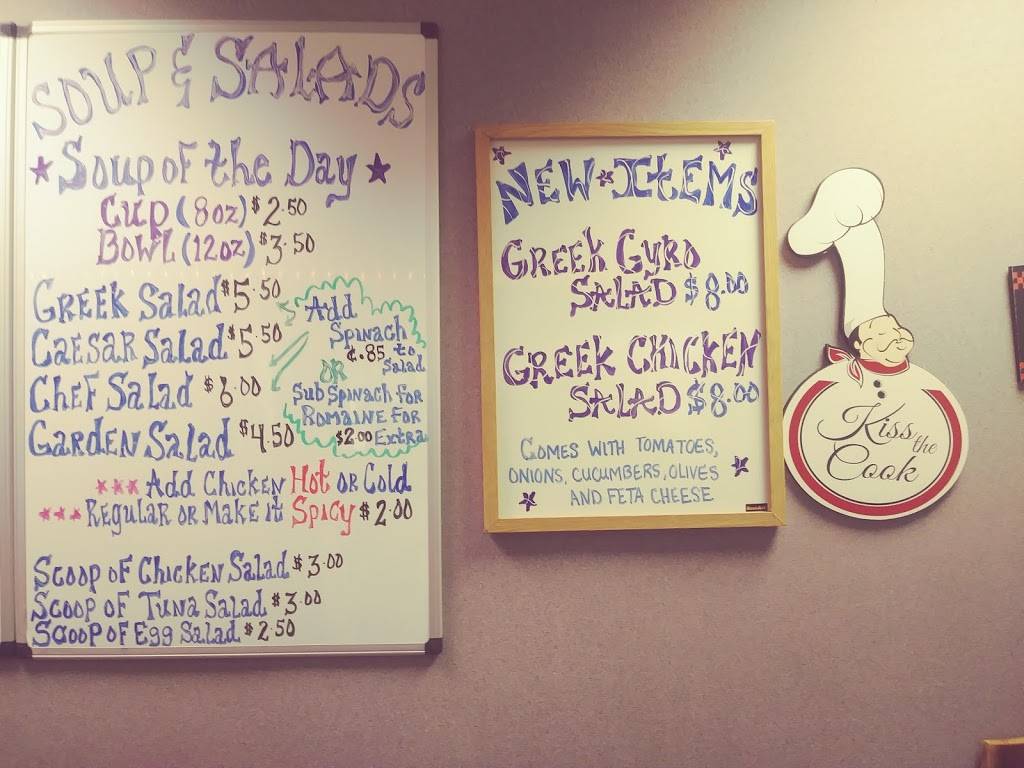 SOUP & SALADS
Soup of the Day
Cup (8oz) $2.50
Bowl (12oz) $3.50
Greek Salad $5.50
Caesar Salad $5.50
Chef Salad $6.00
Garden Salad $4.50
Add
Spinach
¢.85 to
Salad
OR
Sub Spinach for
Romaine for
$2.00 Extra
*** Add Chicken Hot or Cold
*** Regular or Make it Spicy $2.00
Scoop of Chicken Salad $3.00
Scoop of Tuna Salad $3.00
Scoop of Egg Salad $2.50
New Items
Greek Gyro
Salad $8.00
Greek Chicken
Salad $8.00
Comes with tomatoes,
onions, cucumbers, olives
and feta cheese
Kiss
the
Cook